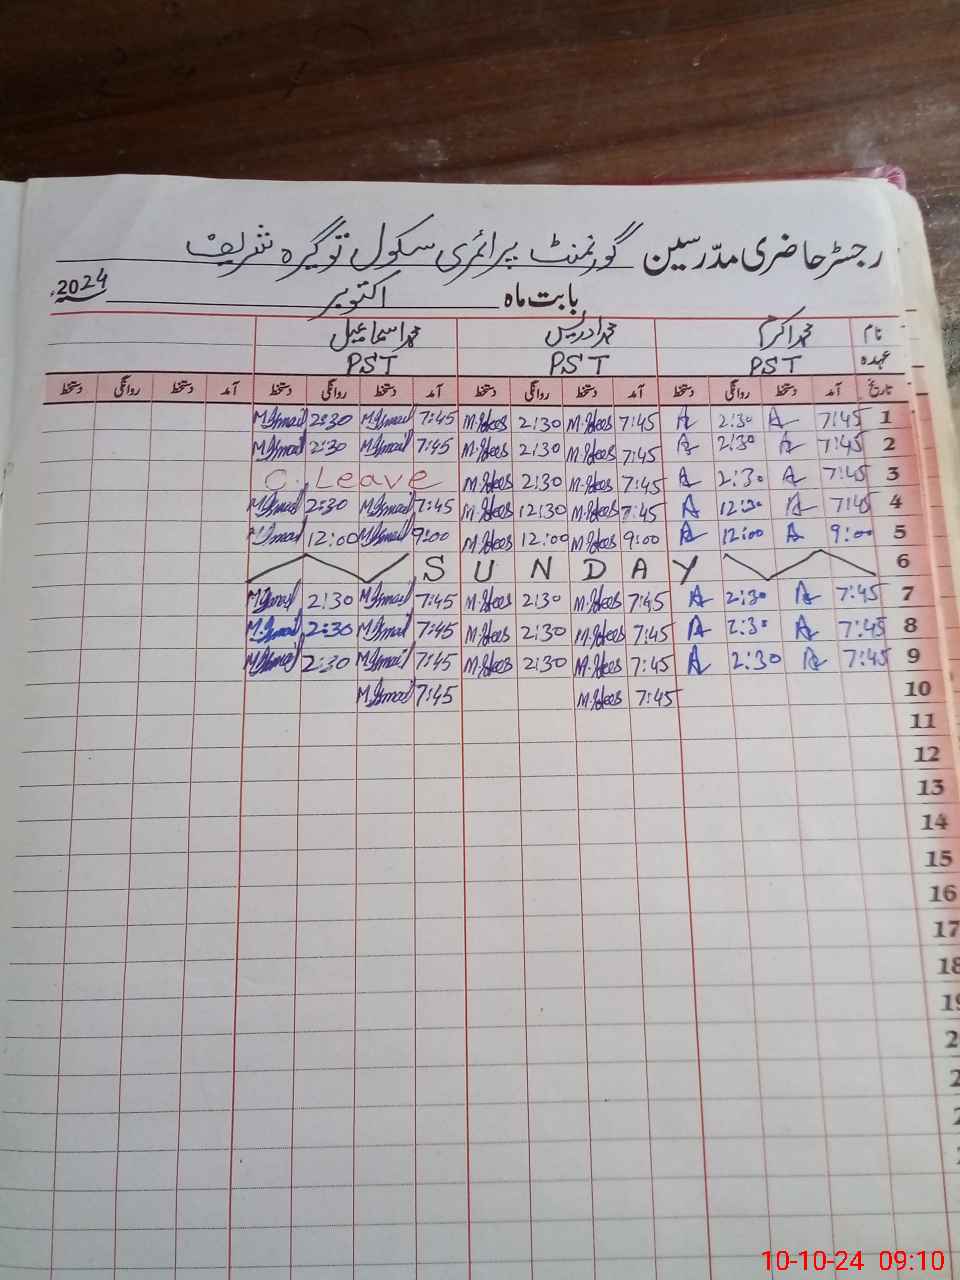 رجسٹر حاضری مدرسین گورنمنٹ پرائمری سکول توگیرہ شریف
بابت ماہ اکتوبر سنہ 2024ء
نام محمد اکرم محمد ادریس محمد اسماعیل
عہدہ PST PST PST
تاریخ آمد دستخط روانگی دستخط آمد دستخط روانگی دستخط آمد دستخط روانگی دستخط آمد دستخط روانگی دستخط
1 7:45 A 2:30 A 7:45 M.Idees 2:30 M.Idees 7:45 M.Ismail 2:30 M.Ismail
2 7:45 A 2:30 A 7:45 M.Idees 2:30 M.Idees 7:45 M.Ismail 2:30 M.Ismail
3 7:45 A 2:30 A 7:45 M.Idees 2:30 M.Idees C. Leave
4 7:45 A 12:30 A 7:45 M.Idees 12:30 M.Idees 7:45 M.Ismail 2:30 M.Ismail
5 9:00 A 12:00 A 9:00 M.Idees 12:00 M.Idees 9:00 M.Ismail 12:00 M.Ismail
6 SUNDAY
7 7:45 A 2:30 A 7:45 M.Idees 2:30 M.Idees 7:45 M.Ismail 2:30 M.Ismail
8 7:45 A 2:30 A 7:45 M.Idees 2:30 M.Idees 7:45 M.Ismail 2:30 M.Ismail
9 7:45 A 2:30 A 7:45 M.Idees 2:30 M.Idees 7:45 M.Ismail 2:30 M.Ismail
10 7:45 M.Idees 7:45 M.Ismail
11
12
13
14
15
16
17
18
19
10-10-24 09:10